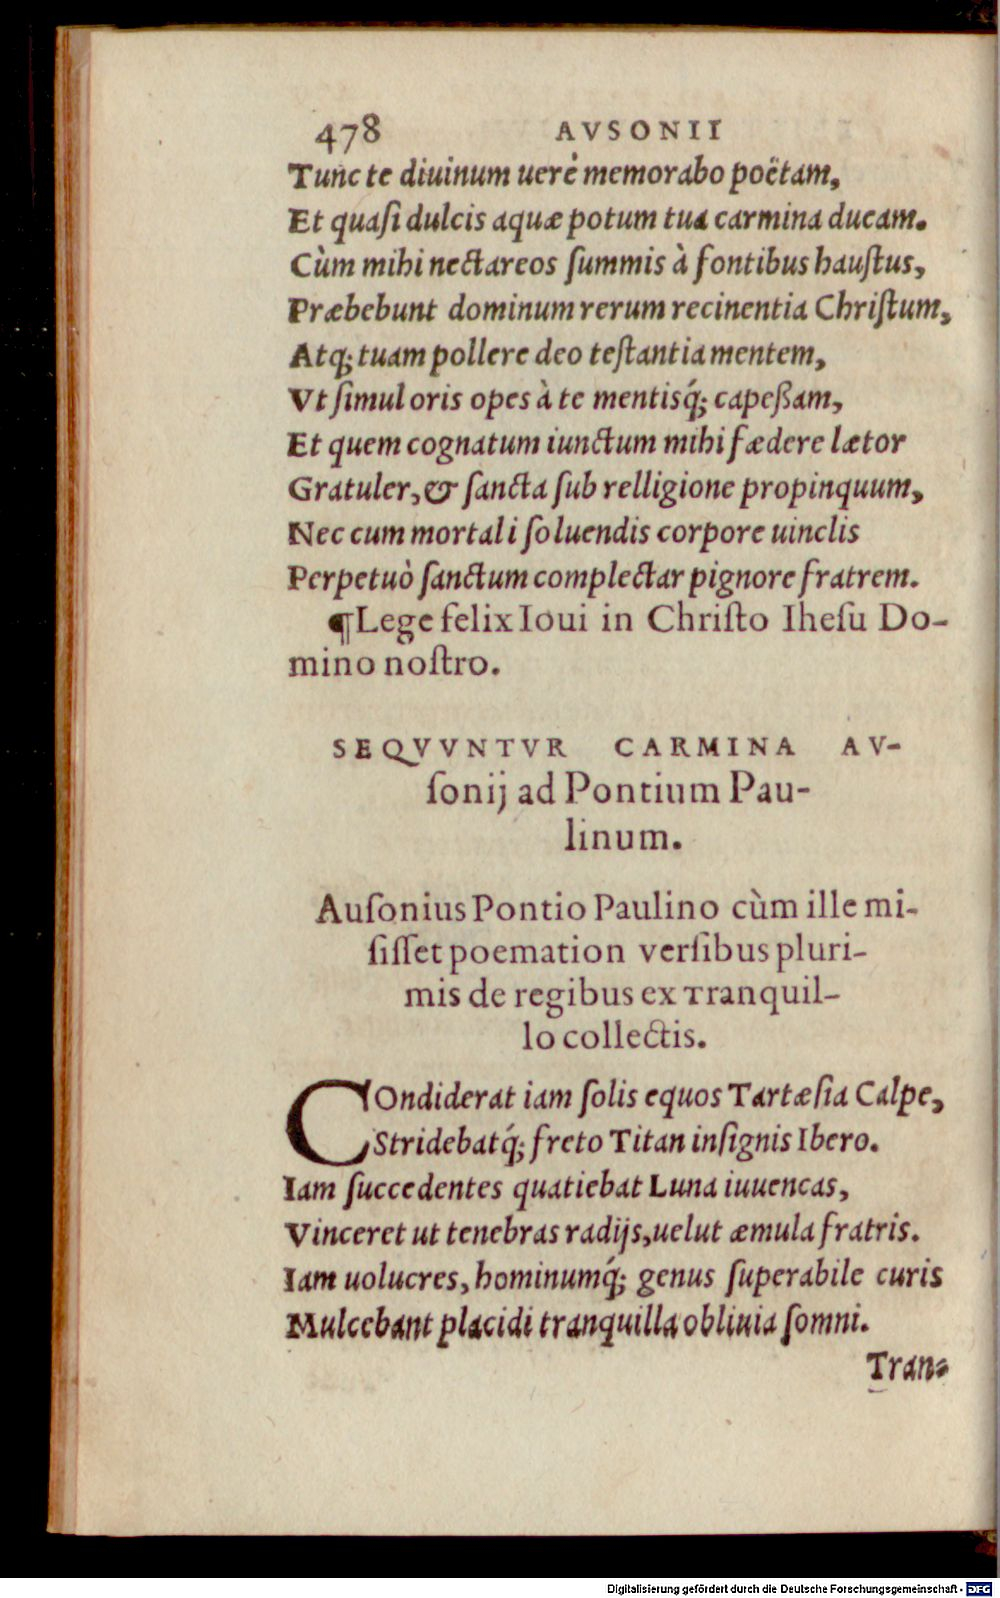 478 AVSONII
Tunc te diuinum uerè memorabo poëtam,
Et quaſi dulcis aquæ potum tua carmina ducam.
Cùm mihi nectareos ſummis à fontibus hauſtus,
Præbebunt dominum rerum recinentia Chriſtum,
Atq; tuam pollere deo teſtantia mentem,
Vt ſimul oris opes à te mentisq́; capeßam,
Et quem cognatum iunctum mihi fædere lætor
Gratuler, & ſancta ſub relligione propinquum,
Nec cum mortali ſoluendis corpore uinclis
Perpetuò ſanctum complectar pignore fratrem.
¶Lege felix Ioui in Chriſto Iheſu Do-
mino noſtro.
SEQVVNTVR CARMINA AV-
ſonij ad Pontium Pau-
linum.
Auſonius Pontio Paulino cùm ille mi-
ſiſſet poemation verſibus pluri-
mis de regibus ex Tranquil-
lo collectis.
COndiderat iam ſolis equos Tartæſia Calpe,
Stridebatq́; freto Titan inſignis Ibero.
Iam ſuccedentes quatiebat Luna iuuencas,
Vinceret ut tenebras radijs, uelut æmula fratris.
Iam uolucres, hominumq́; genus ſuperabile curis
Mulcebant placidi tranquilla obliuia ſomni.
Tran-
Digitalisierung gefördert durch die Deutsche Forschungsgemeinschaft - DFG